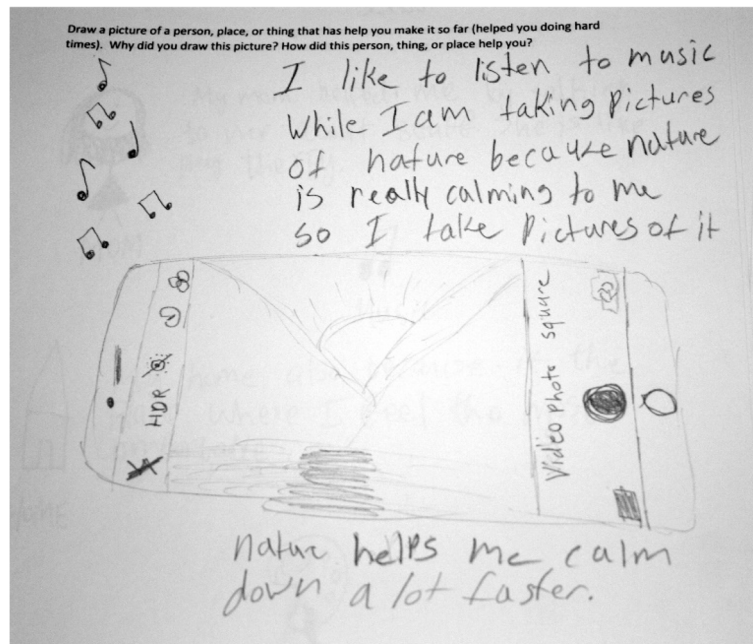 Draw a picture of a person, place, or thing that has help you make it so far (helped you doing hard
times). Why did you draw this picture? How did this person, thing, or place help you?
I like to listen to music
While I am taking Pictures
of nature because nature
is really calming to me
so I take Pictures of it
HDR
Video photo square
nature helps me calm
down a lot faster.